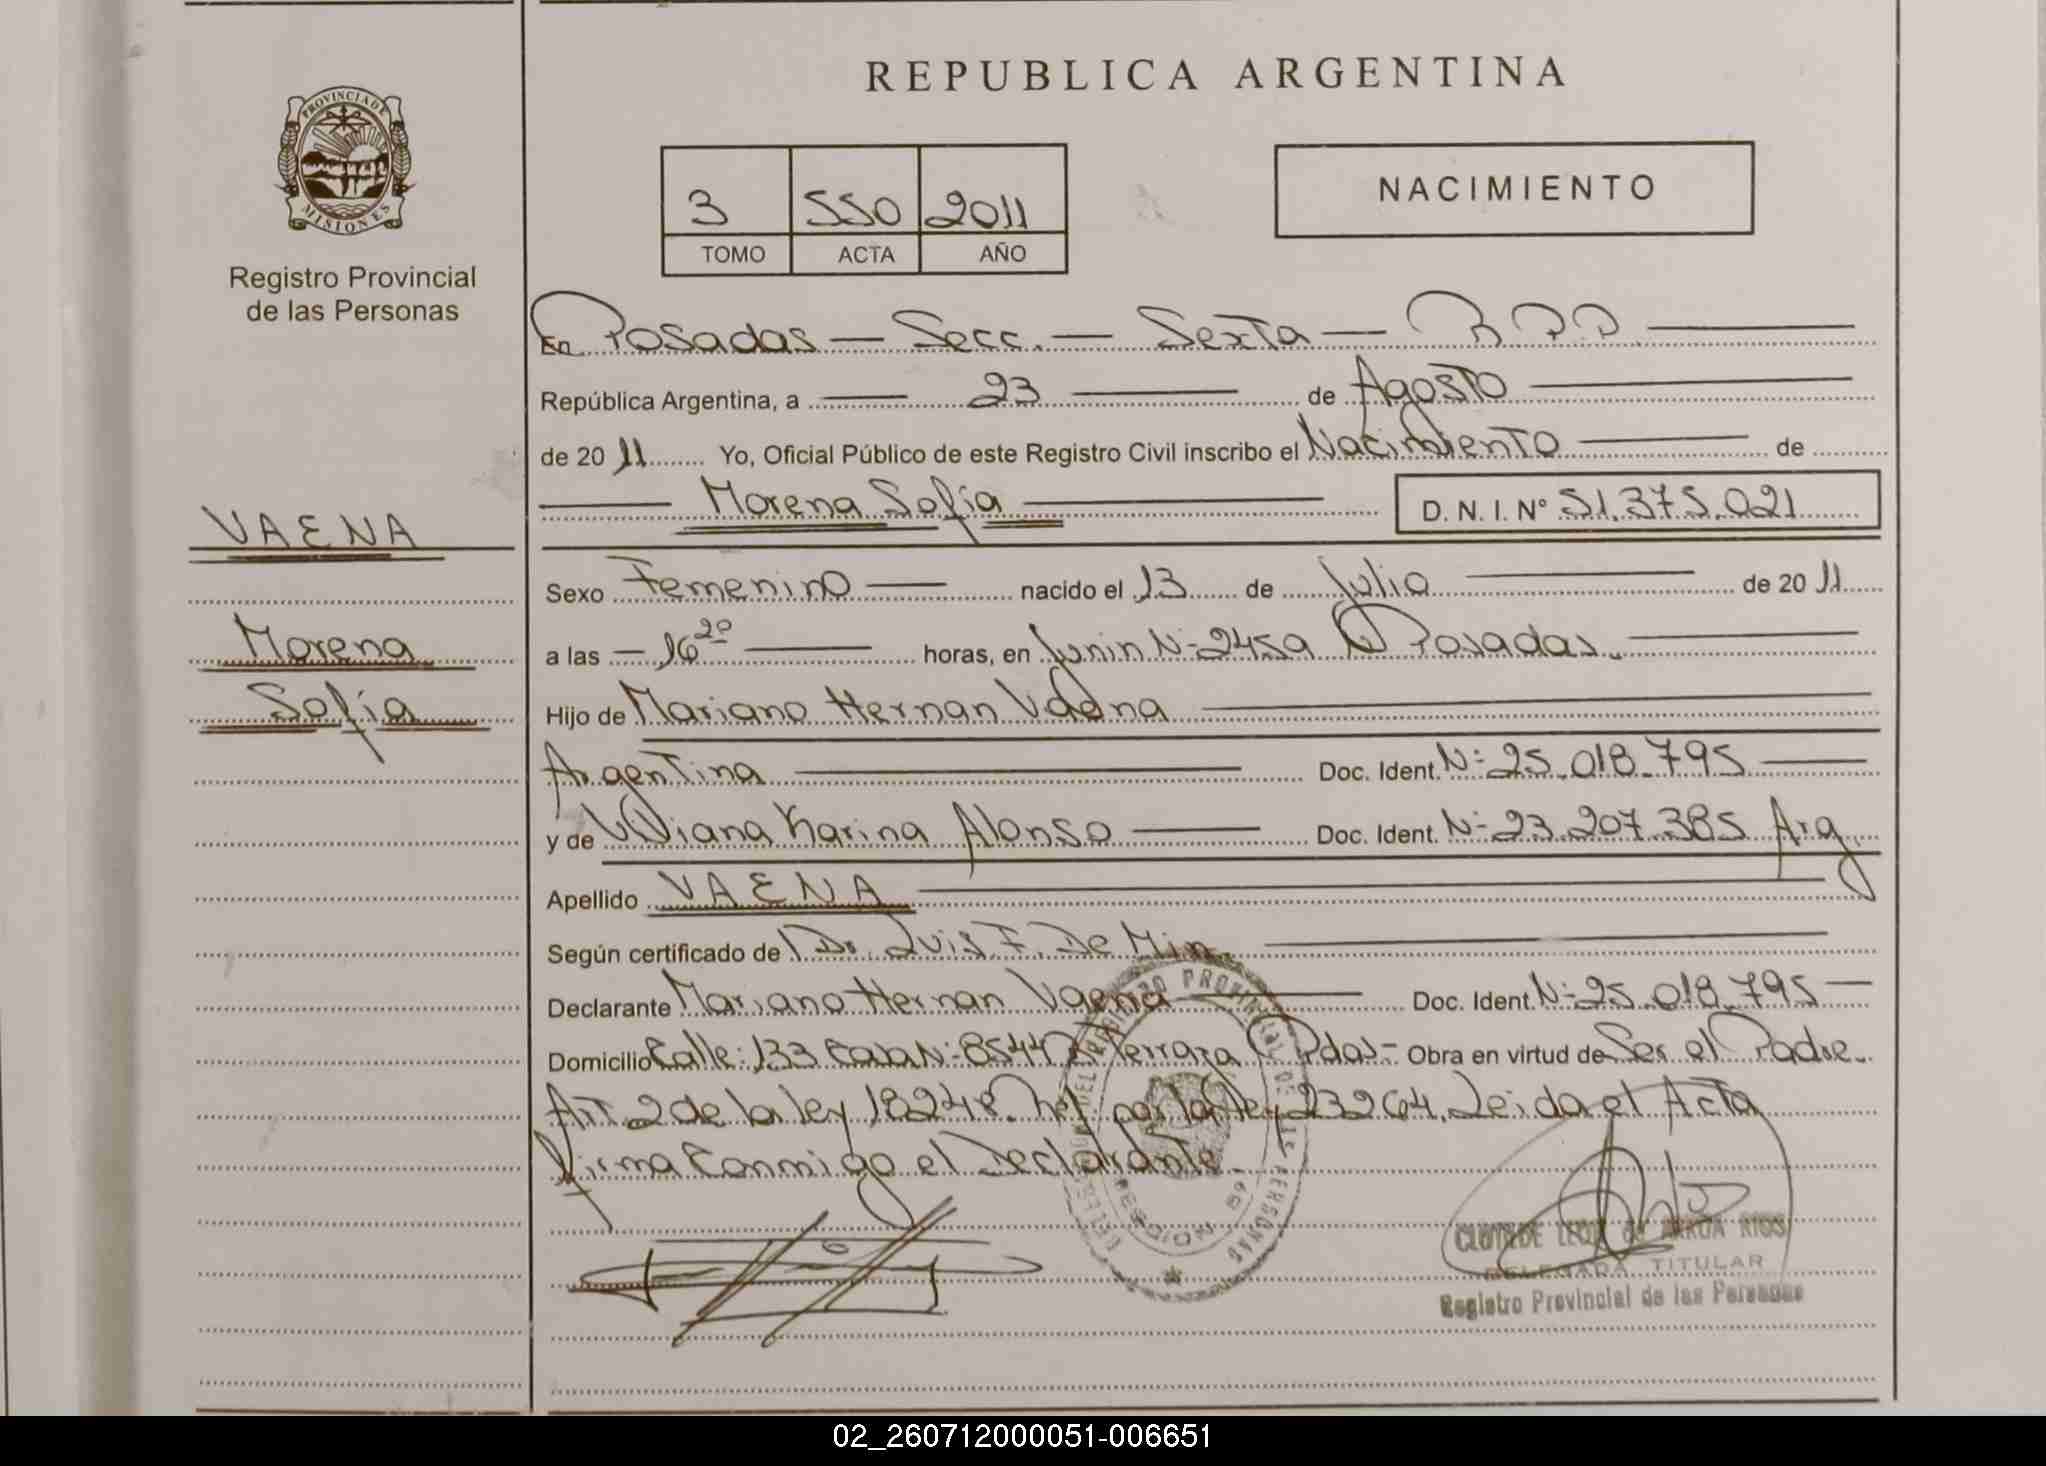 REPUBLICA ARGENTINA
PROVINCIA DE MISIONES
Registro Provincial
de las Personas
3 550 2011
TOMO ACTA AÑO
NACIMIENTO
En Posadas — Secc. — Sexta — R.P.P.
República Argentina, a — 23 — de Agosto
de 2011 Yo, Oficial Público de este Registro Civil inscribo el Nacimiento — de
— Morena Sofía — D. N. I. Nº 51.375.021
VAENA
Morena
Sofía
Sexo Femenino — nacido el 13 de Julio — de 2011
a las — 16 20 — horas, en Junin Nº 2459 Posadas.
Hijo de Mariano Hernan Vaena
Argentina — Doc. Ident. Nº 25.018.795 —
y de Viviana Karina Alonso — Doc. Ident. Nº 23.207.385 Arg.
Apellido VAENA
Según certificado de Dr. Luis F. De Min
Declarante Mariano Hernan Vaena — Doc. Ident. Nº 25.018.795 —
Domicilio Calle: 133 Casa Nº 8544 Terraza Pdas — Obra en virtud de Ser el Padre.
Art. 2 de la ley 18248. por la ley 23264. Leida el Acta
firma conmigo el Declarante.
REGISTRO PROVINCIAL DE LAS PERSONAS
CLOTILDE LEON de ARRUA RIOS
DELEGADA TITULAR
Registro Provincial de las Personas
02_260712000051-006651